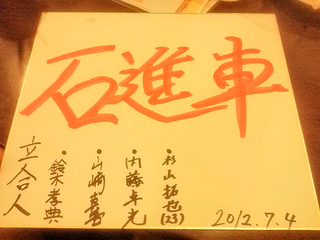 石進車
立合人
・鈴木孝典
・山崎
・内藤卓光
・杉山拓也(23)
2012.7.4